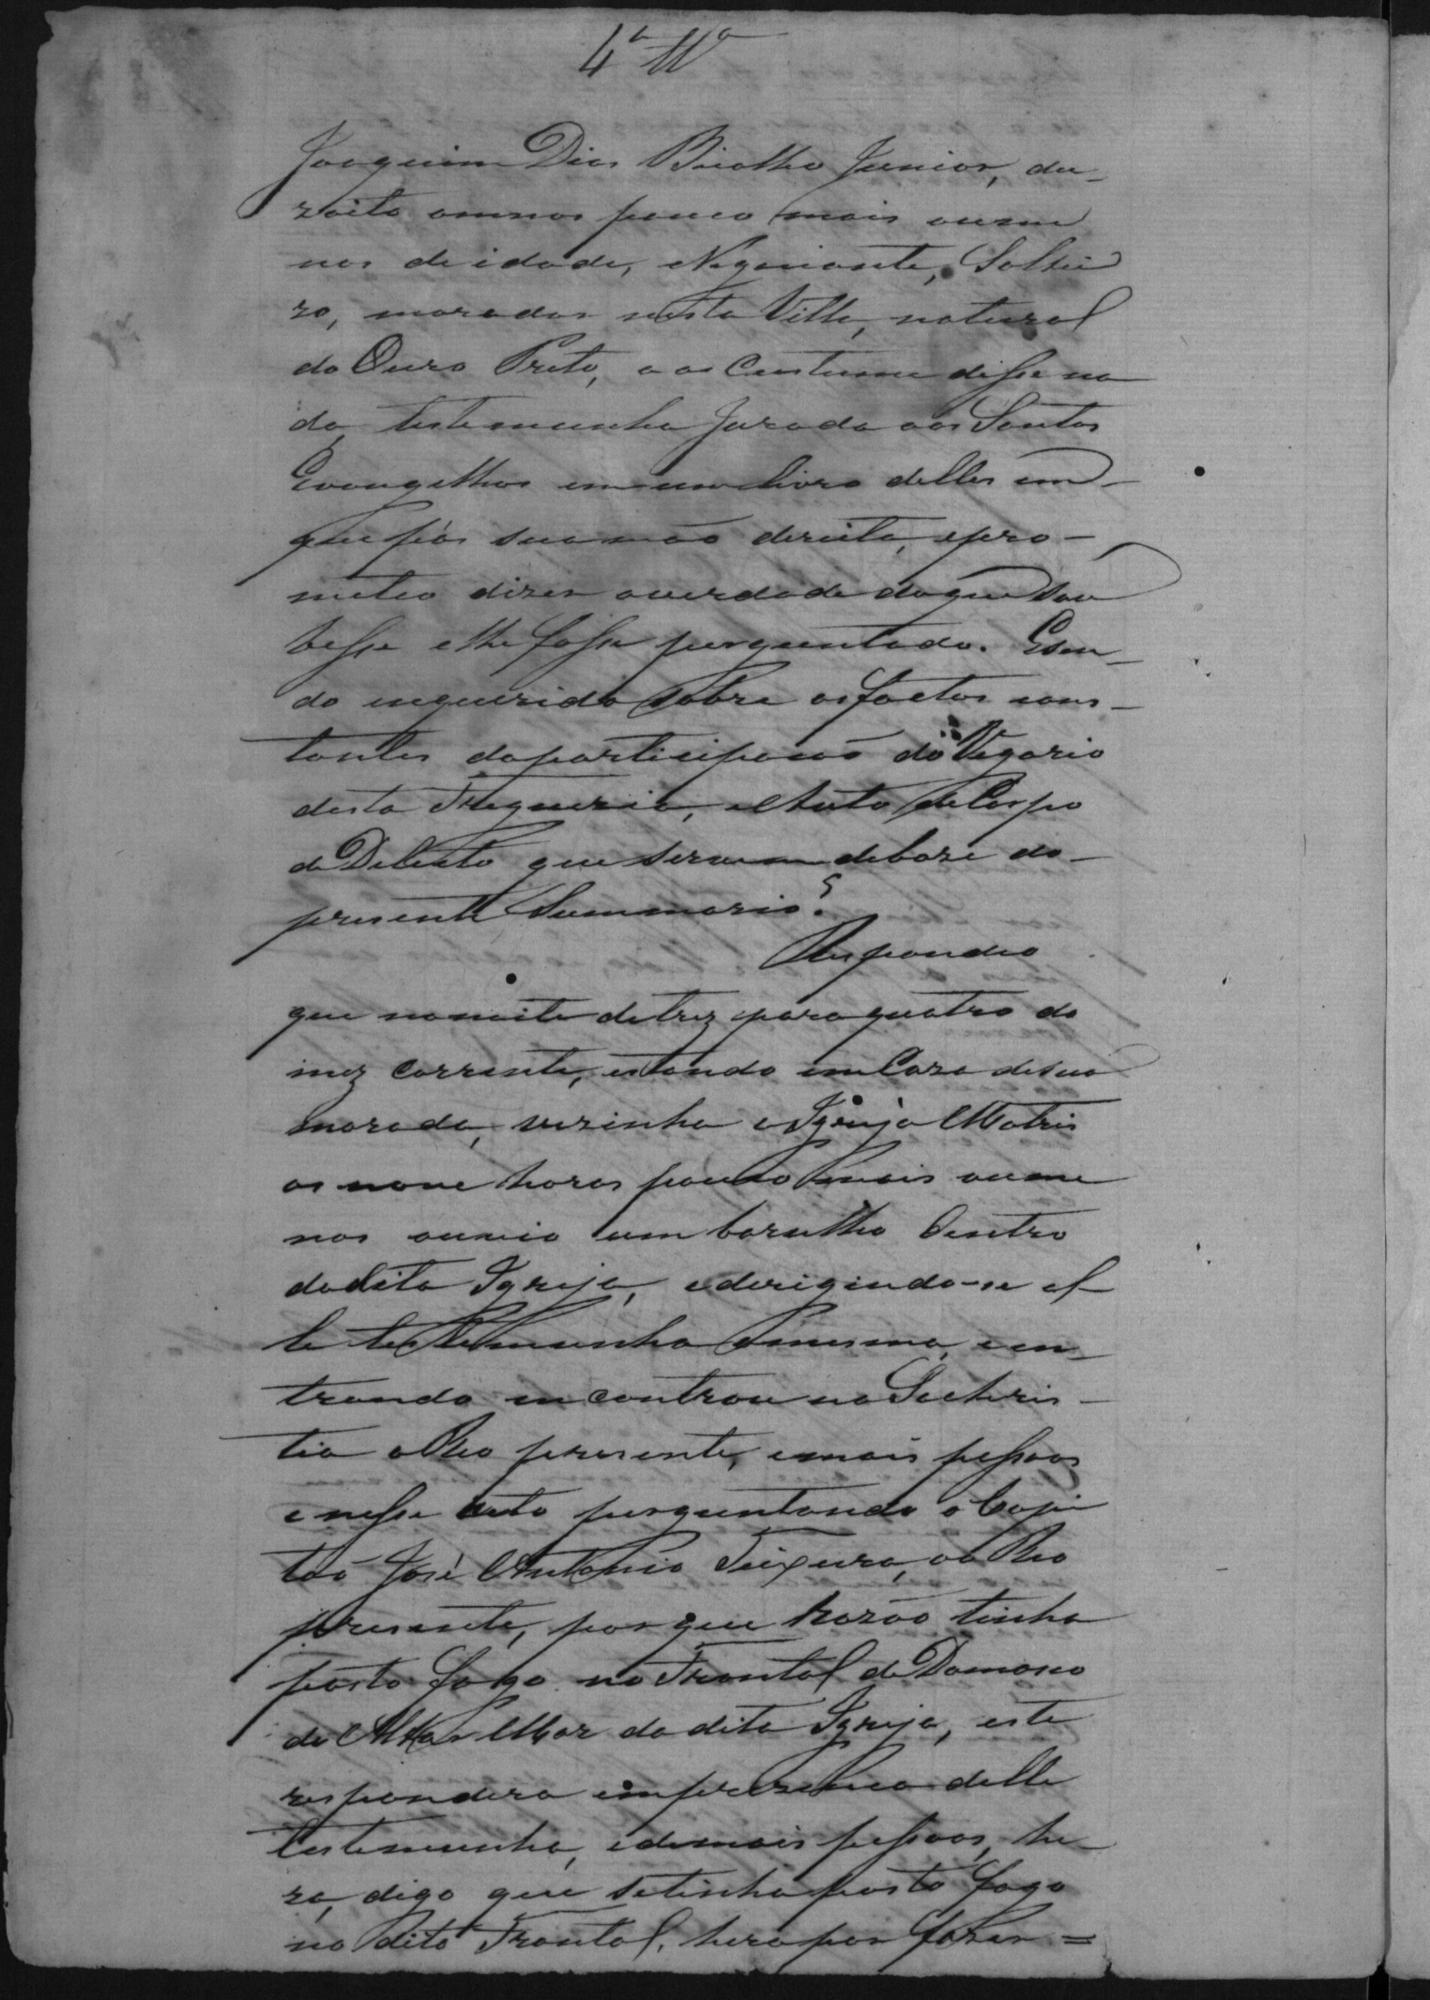 4ª Tª
Joaquim Dias Bicalho Junior, de-
zoito annos pouco mais oume
nos de idade, Negociante, Soltei
ro, morador nesta Villa, natural
do Ouro Preto, e os Custume disse na
da, testemunha Jurada aos Santos
Evangelhos em um livro delles em
que pôs sua mão dereita, epro-
meteo dizer averdade doque sou
besse elhe fosse perguntado. Esen-
do inquerido sobre osfactos cons-
tantes daparticipacaõ do Vigario
desta Freguezia, e Auto de Corpo
de Delicto que servem debaze do
presente Summario?
Respondeo
que nanoite detrez para quatro do
mez corrente, estando em Caza desua
morada, vezinha a Igreja Matris
as nove horas pouco mais oume
nos ouvio um barulho dentro
dadita Igreja, ederigindo-se el
le testemunha amesma, e en-
trando encontrou na Sachris-
tia o Reo presente, e mais pessoas
e nesse acto perguntando o Capi
taõ José Antonio Teixeira, ao Reo
presente, por que razaõ tinha
posto fogo no Frontal de Damasco
do Altar Mor da dita Igreja, este
respondera em prezença delle
testemunha, e demais pessoas, he
ra, digo que setinha posto fogo
no dito Frontal, hera por fazer=